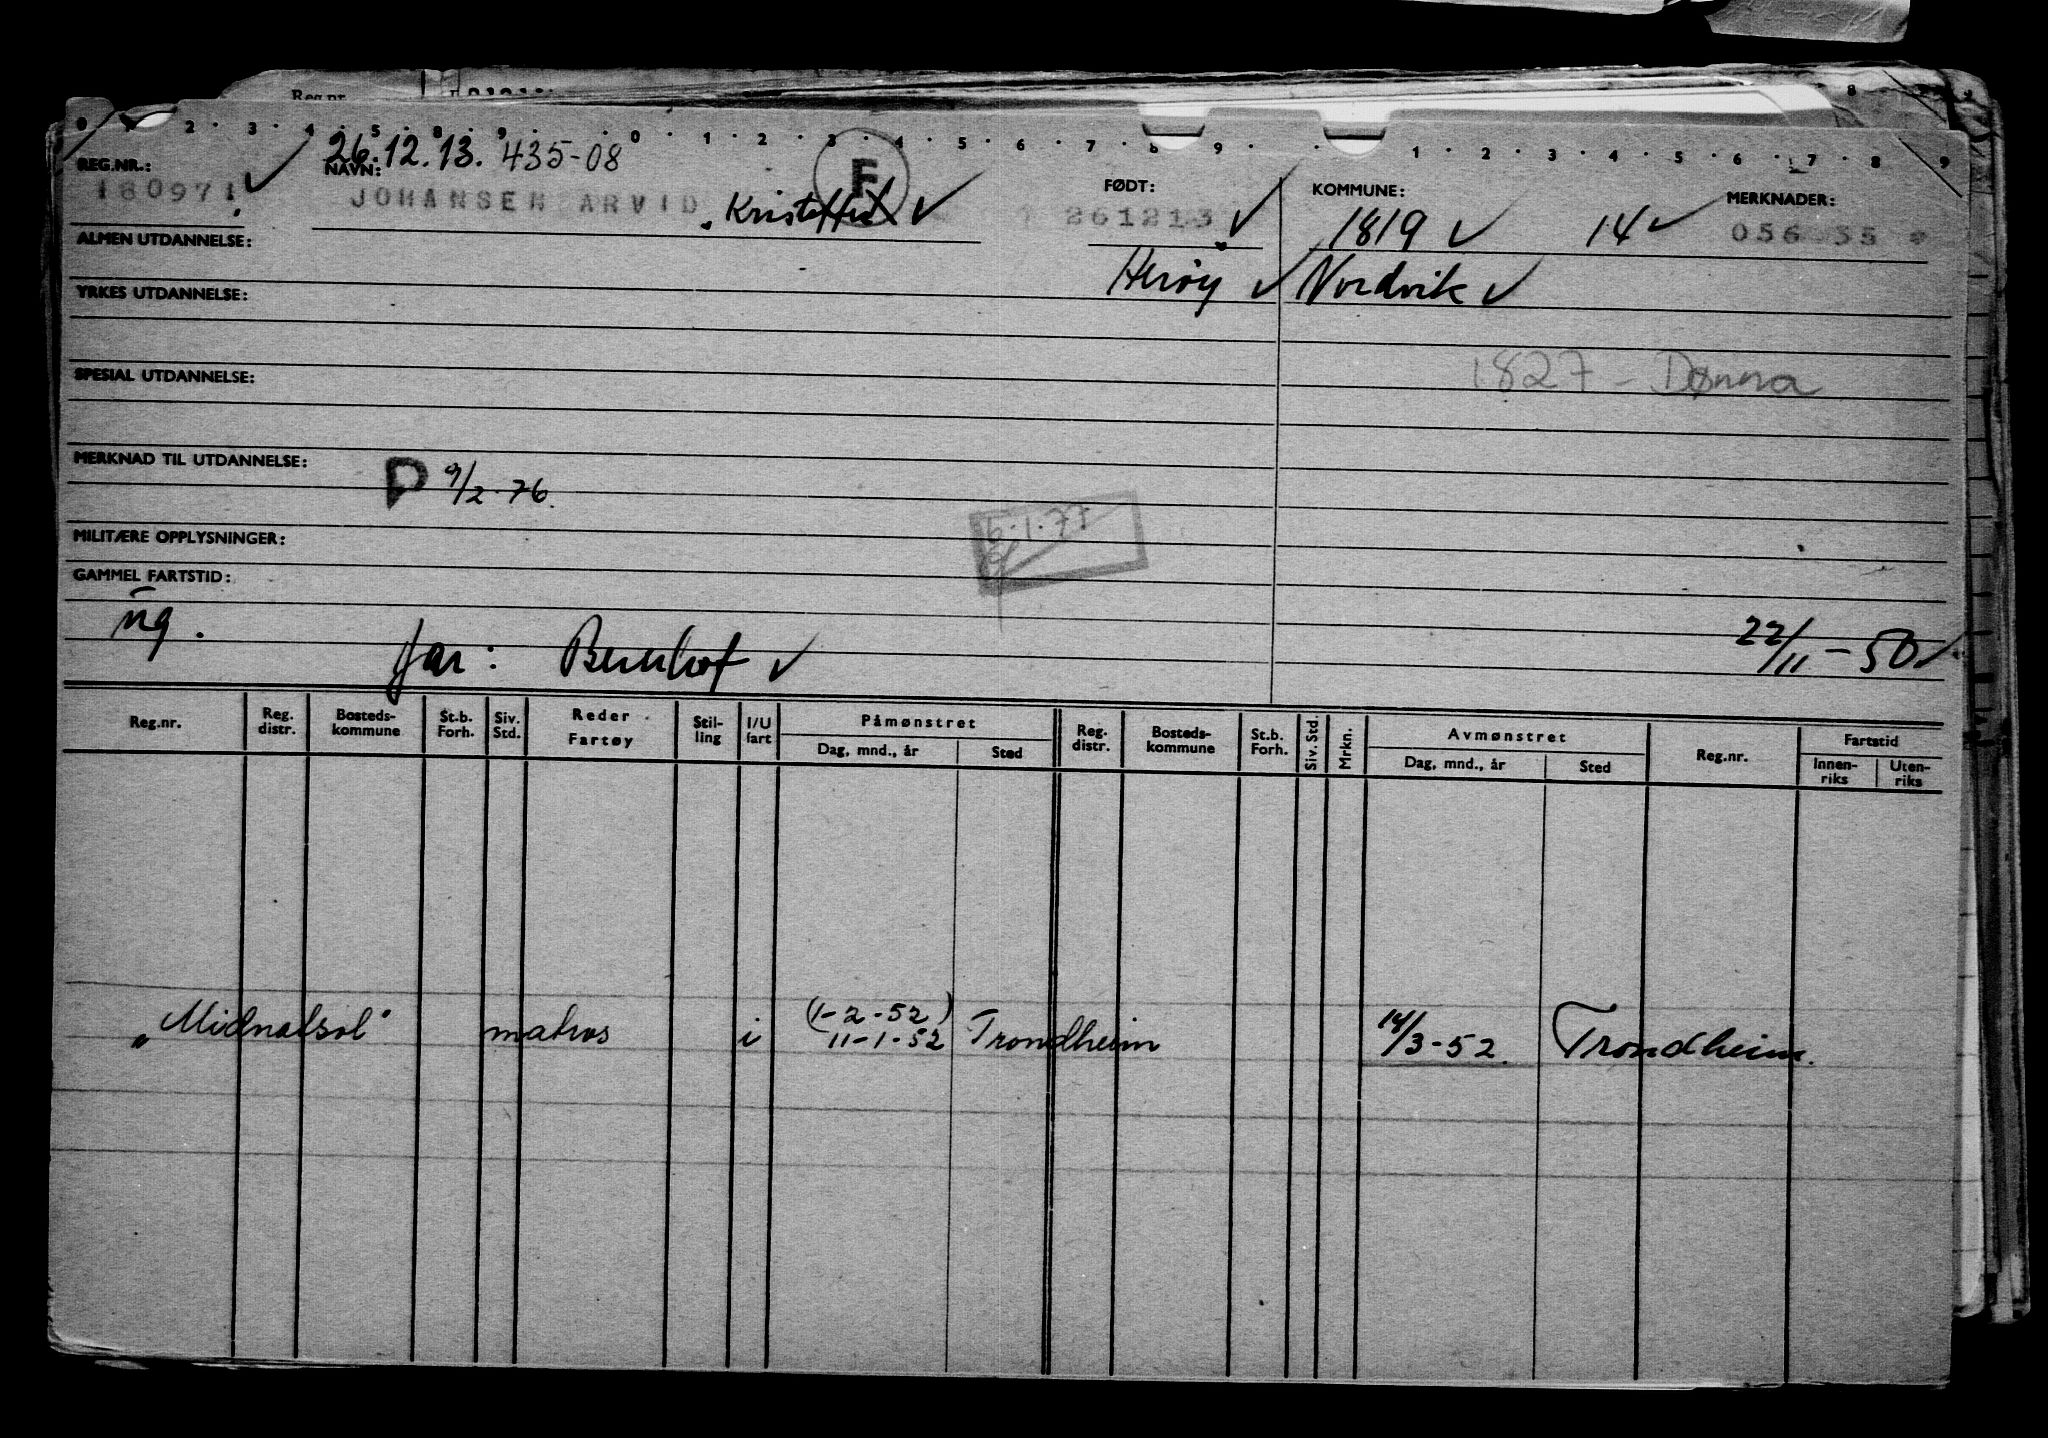 Reg.nr.
0 1 2 . 3 . 4 . 5 . 8 . 9 . . 0 . 1 . 2 . 3 . 4 . 5 . 6 . 7 . 8 . 9 . . 1 . 2 . 3 . 4 . 5 . 6 . 7 . 8 . 9
26.12.13. 435-08
REG.NR.: NAVN: F FØDT: KOMMUNE: MERKNADER:
180971 JOHANSEN ARVID Kristoffer 261213 1819 14
ALMEN UTDANNELSE:
Herøy Nordvik
YRKES UTDANNELSE:
1827 - Dønna
SPESIAL UTDANNELSE:
MERKNAD TIL UTDANNELSE:
P 9/2-76.
5.1.77
MILITÆRE OPPLYSNINGER:
GAMMEL FARTSTID:
ug.
far: Bernhof 22/11-50
Reg.nr. Reg. distr. Bosteds- kommune St.b. Forh. Siv. Std. Reder Fartøy Stil- ling I/U fart Påmønstret Dag, mnd., år Sted Reg. distr. Bosteds- kommune St.b. Forh. Siv. Std. Mrkn. Avmønstret Dag, mnd., år Sted Reg.nr. Fartstid Innen- riks Uten- riks
(1-2-52)
"Midnatsol" matros i 11-1-52 Trondheim 14/3-52. Trondheim.